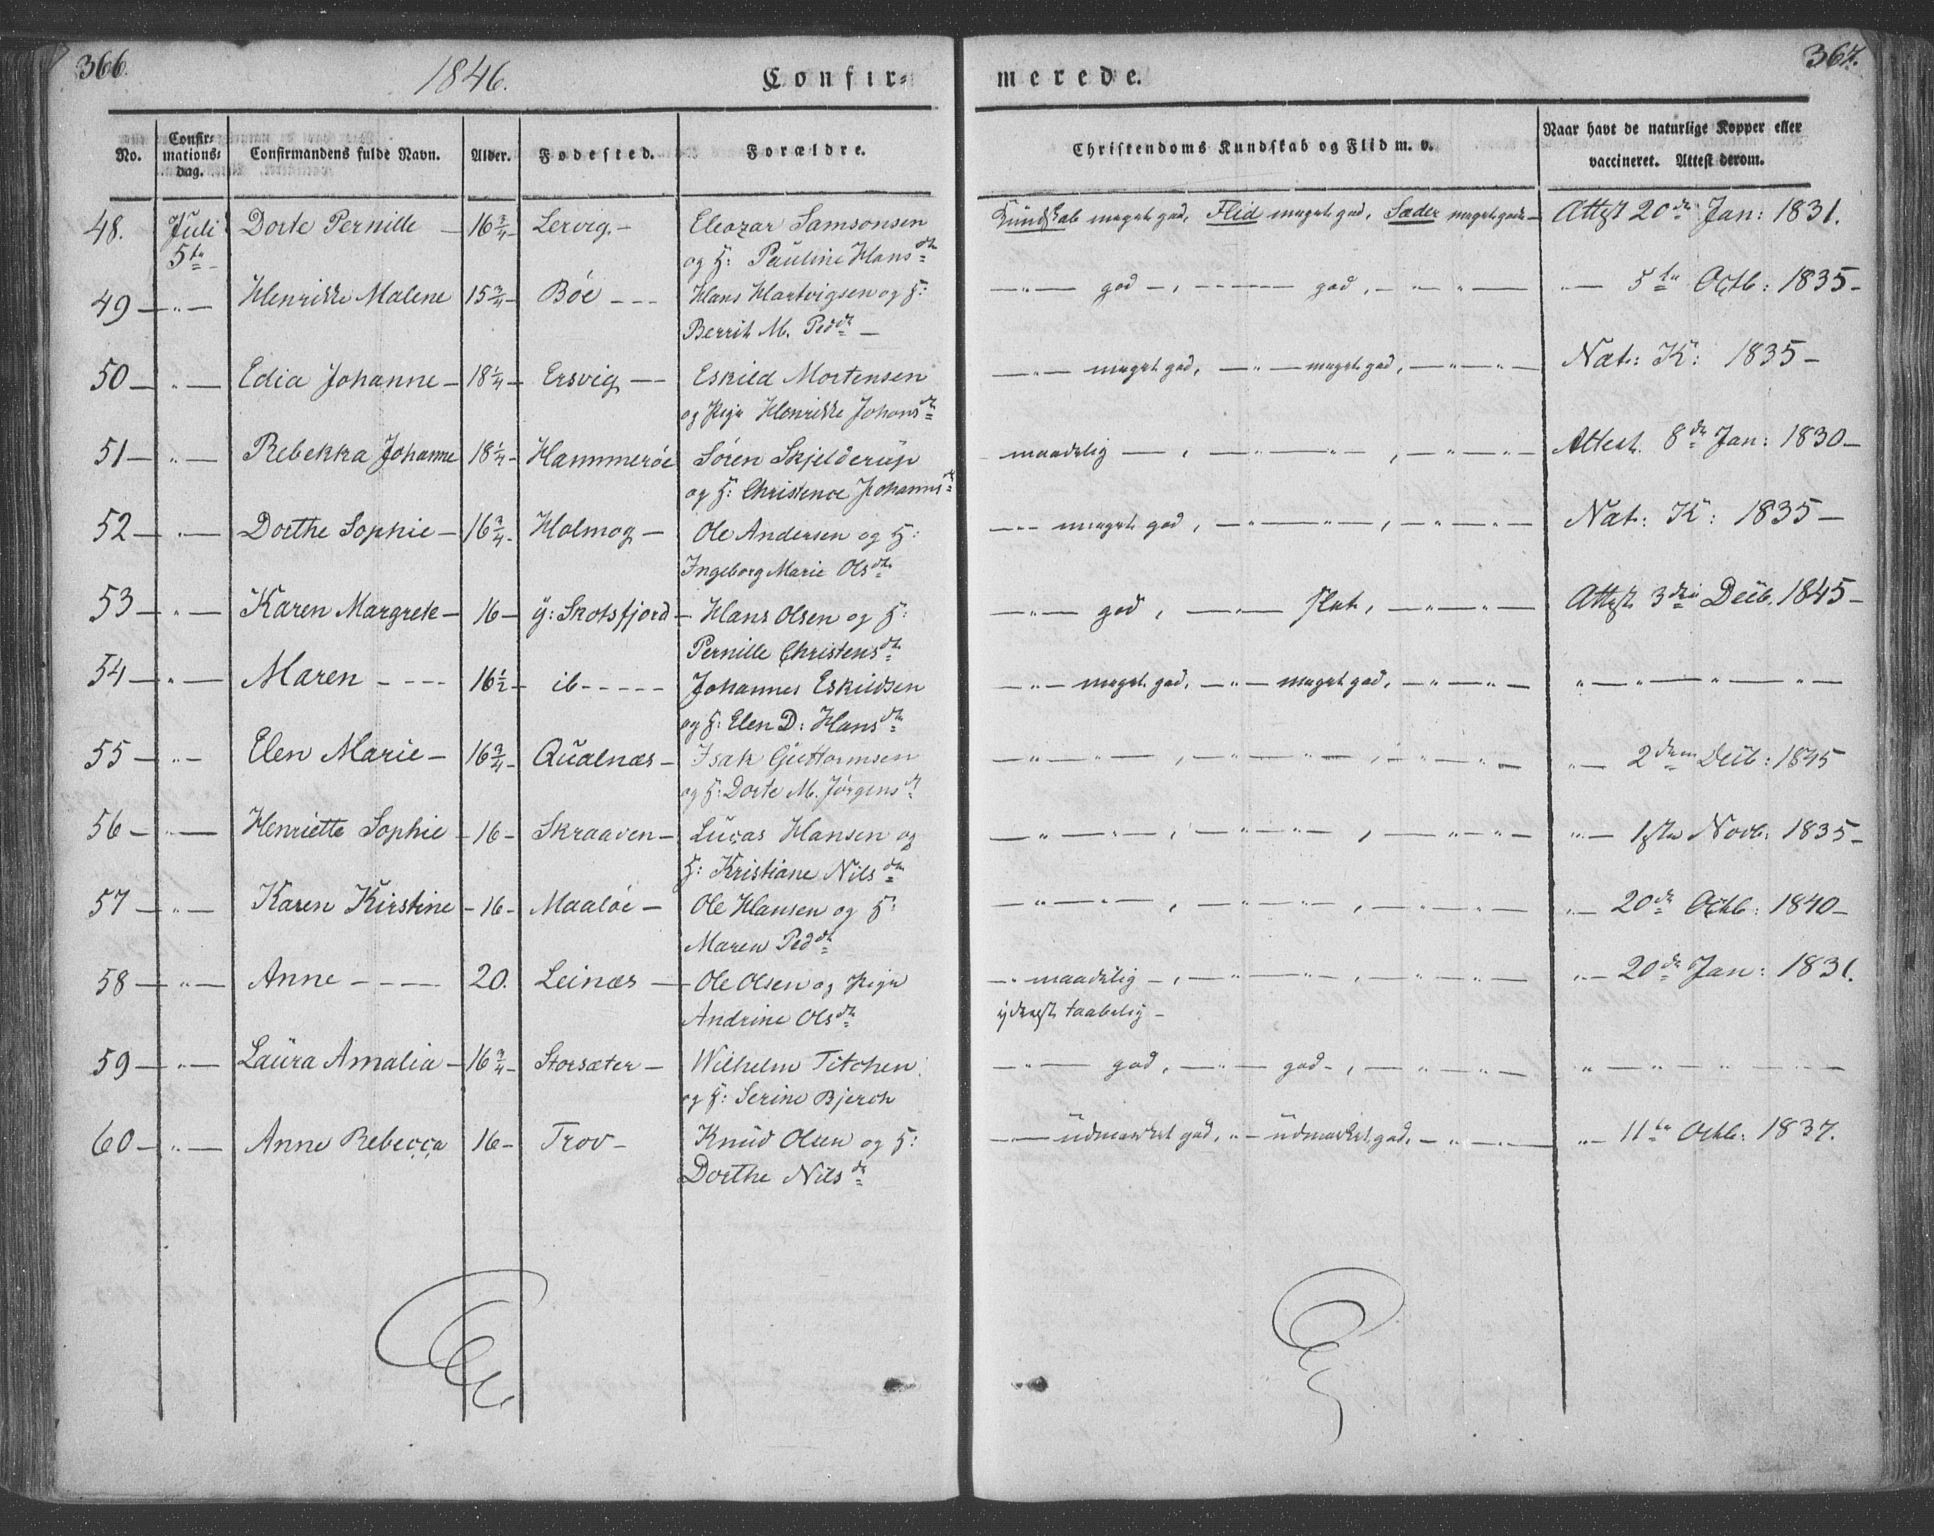 366. 1846. Confir= merede. 367.
No. Confir=mations=dag. Confirmandens fulde Navn. Alder. Fødested. Forældre. Christendoms Kundskab og Flid m. v. Naar havt de naturlige Kopper eller vaccineret. Attest derom.
48. Juli 5te Dorte Pernille — 16 3/4 Lervig. - Eleazar Samsonsen Kundskab meget god, Flid meget god, Sæder meget gode — Attest 20de Jan: 1831.
og H: Pauline Hansdtr
49 — " — Henrikke Malene 15 3/4 - Böe - - - Hans Hartvigsen og H: — " — god —, — - - - god, — " — " — — 5te Octb: 1835 -
Berrit M. Peddtr —
50 — " — Edia Johanne — 18 1/4 - Ersvig — Eskild Mortensen — " — meget god, — " — meget god, — " — " — Nat: K: 1835 -
og Pige Henrikke Johansdtr
51 — " — Rebekka Johanne 18 1/4 - Hammeröe Sören Skjelderup maadelig —, — " — " —, — " — " — Attest. 8de Jan: 1830 -
og H: Christence Johannsdtr
52 — " — Dorthe Sophie — 16 3/4 - Holmog — Ole Andersen og H: — " — meget god, — " — " —, — " — " — Nat: K: 1835 —
Ingeborg Marie Olsdtr
53 — " — Karen Margrete - 16 — y: Skotsfjord — Hans Olsen og H: — " — god, — " — slet, — " — " — Attest 3die Decb. 1845 -
Pernille Christensdtr
54 — " — Maren - - - - 16 1/2 - ib - - - - - Johannes Eskildsen — " — meget god, — " — meget god, — " — " — " — " — " — " — " —
og H: Elen D: Hansdtr
55 — " — Elen Marie — 16 3/4 - Qualnæs — Isak Guttormsen — " — " —, — " — " —, — " — " — " — 2den Decb: 1845
og H: Dorte M. Jörgensdtr
56 — " — Henriette Sophie - 16 - Skraaven — Lucas Hansen og — " — " —, — " — " —, — " — " — " — 1ste Novb: 1835 -
H: Kristiane Nilsdtr
57 — " — Karen Kirstine - 16 - Maalöe — Ole Hansen og H: — " — " —, — " — " —, — " — " — " — 20de Octb: 1840 -
Maren Peddtr
58 — " — Anne - - - — 20. Leinæs — Ole Olsen og Pige - " - maadelig —, — " — " —, — " — " — " — 20de Jan: 1831.
Andrine Olsdtr yderst taabelig -
59 — " — Laura Amalia — 16 3/4 - Storsæter — Wilhelm Titchen — " — god, — " — god -, — " — " — " — " — " — " — " —
og H: Serine Bjerch
60 — " — Anne Rebecca 16 - Trov - Knud Olsen og H: — " — udmærket god, " — udmærket god, — " — " — " — 11te Octb: 1837.
Dorthe Nilsdtr